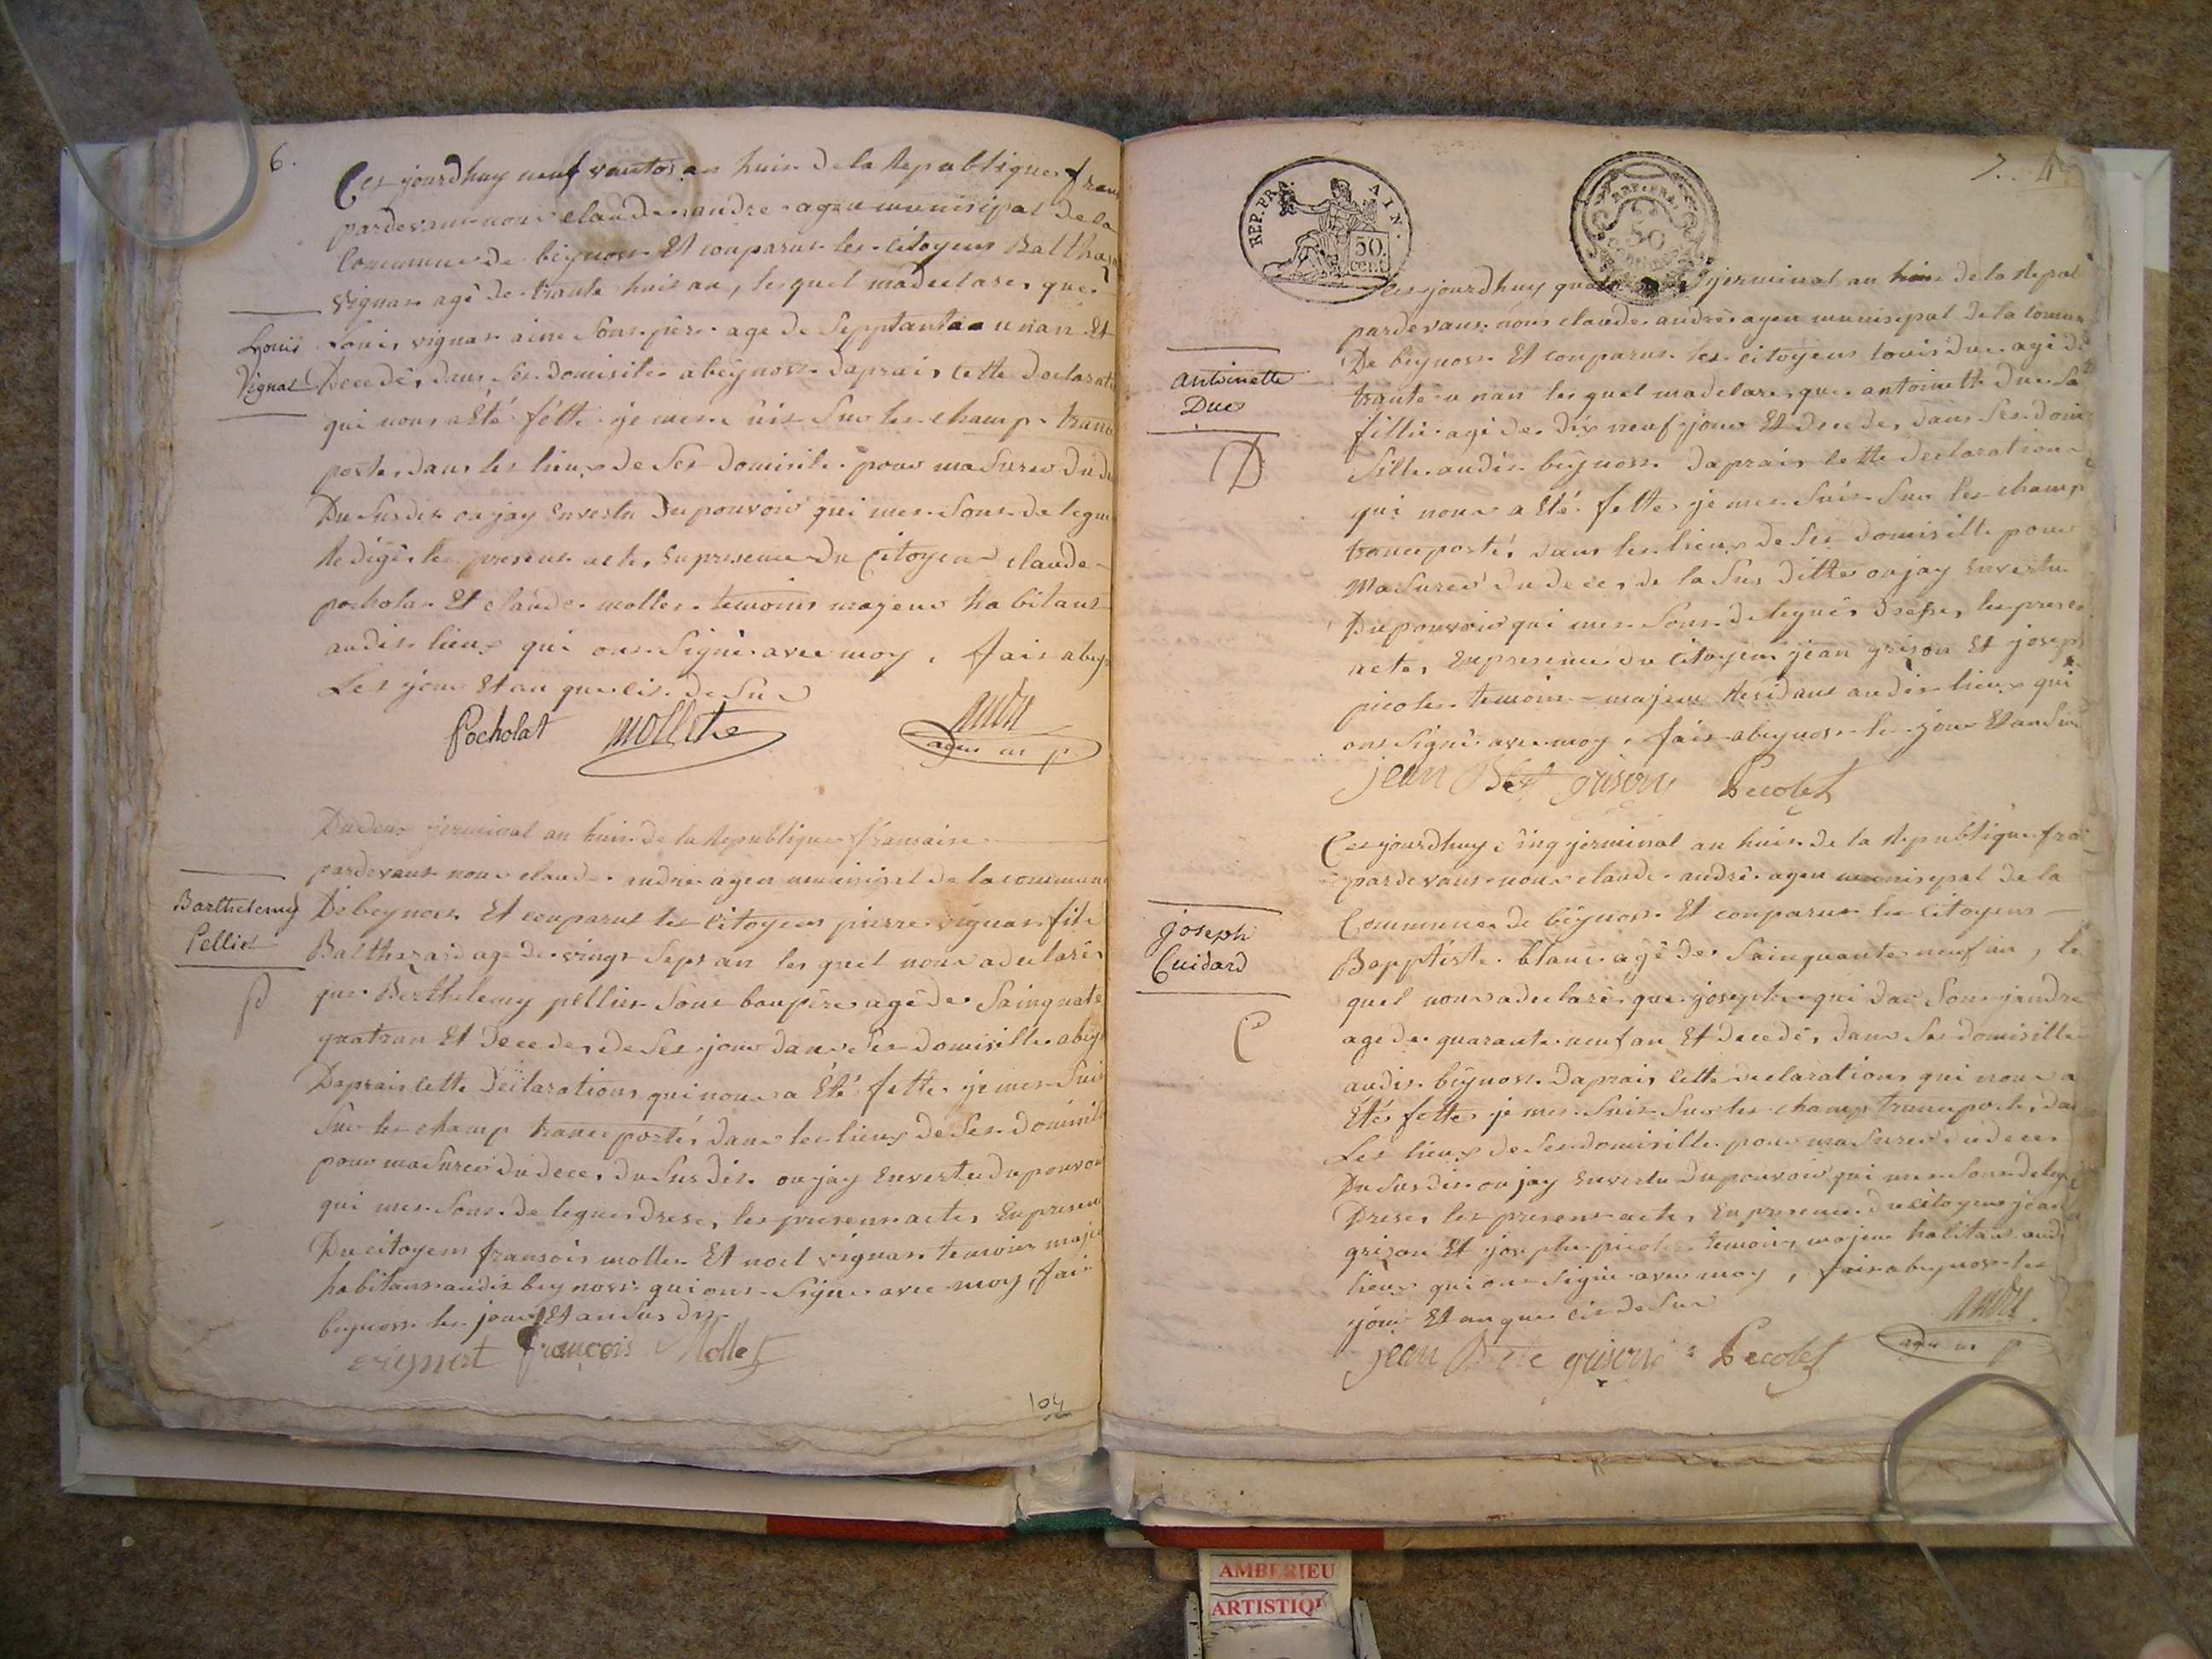 6.
Cet jourdhuy neuf vantos an huit de la Republique fran
pardevant nous claude andre agen munisipal de la
Commune de beynost Et conparut les citoyens Baltha
vignat agé de trante huit an, lequel madeclare, que
Louis
Vignat
Louis vignat aine Sont père age de Sepptanta unan Et
Decedé, dans Ses domisile abeynost daprais cette declarat
qui nous a Eté fette je mes suis Sur les champ trans
porté, dans les lieux de Ses domisile pour masurer du de
Du Susdit oujay Envertu Dupouvoir qui mes Sont delegue
Redigé les present acte, Enpresence Du Citoyens claude
pocholat Et claude mollet temoins majeur habitant
audit lieux qui ont Signé avec moy, fait abey
Les jour Et an que cit deSur
Pocholat mollete andre
agen m p
Dudeux jerminal an huit de la Republique fransaise
pardevant nous claude andre agen munisipal de la commune
Barthelemy
Pelliet
De beynost Et conparut les citoyens pierre vignat fils
Balthazard age de vingt Sept an les quel nous adeclaré,
que Berthelemy pellier Sont beaupère agé de Sainquate
quatran Et Decede, de Ses jour dans Ses domisille abey
Daprais cette declarations qui nous a Eté fette je mes Suis
Sur les champ trancporté, dans les lieux de Ses domisil
pour masurer du deces, du Susdit oujay Envertu dupouvoir
qui mes Sont delegue, dresé, les present acte, Enpresen
Du citoyens fransois mollet Et noel vignat temoins majeu
habitant audit beynost qui ont Signé avec moy, fait
beynost les jour Et an Susdit
vignat françois Mollet
104
7.
REP. FRA. AIN.
50 cent
REP. FRA.
50
Ces jourdhuy jerminal an huit de la Repub
pardevant nous claude andré agen munisepal de la comun
De beynost Et conparut les citoyens Louis duc agé de
antoinette
Duc
D
trante unan les quel madelare, que antoinette duc Sa
fillie agé de dix neuf jour Et decede, dans Ses domi
sille audit beynost daprais cette declaration
qui nous a Eté fette je mes Suis Sur les champ
trancporté, dans les lieux de Ses domisille pour
Masurer du deces, de la Sus ditte oujay Envertu
Dupouvoir qui mes Sont delegué, dresse, les presen
acte, Enpresence du citoyens jean grison Et josep
picolet temoins majeur Residant audit lieux qui
ont Signé avec moy, fait abeynost les jour Et an Sus
jean Bte grison Picolet
Ces jourdhuy cinq jerminal an huit de la Republique fra
pardevant nous claude andré agen munisepal de la
Commune de beynost Et conparut les citoyens
joseph
Cuidard
C
Bapptiste blanc agé de Sainquante neuf an, le
quel nous adeclaré que joseph quidar Sont jandre
age de quarante neuf an Et decedé, dans Ses domisille
audit beynost daprais cette declarations qui nous a
Eté fette je mes Suis Sur les champ trancporté, dan
Les lieux de Ses domisille pour masurer du deces
Du Susdit oujay Envertu dupouvoir qui mes Sont deleg
Dresé, les present acte, Enpresence du citoyens jean
grison Et joseph picolet temoins majeur habitant audi
lieux qui ont Signé avec moy, fait abeynost les
jour Et an que cit deSur
jean Bte grison Picolet
andre
agen m p
AMBERIEU
ARTISTIQU